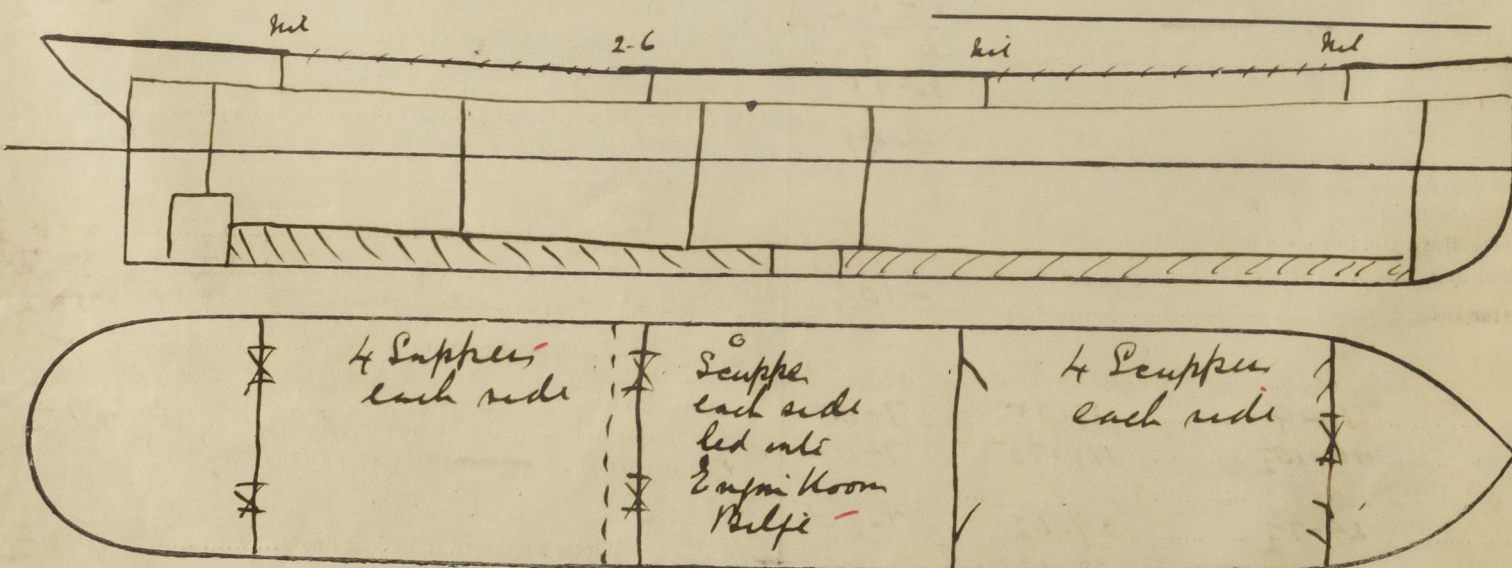 Nil
2-6
Nil
Nil
4 Scuppers
each side
Scupper
each side
led into
Engine Room
Bilge
4 Scuppers
each side